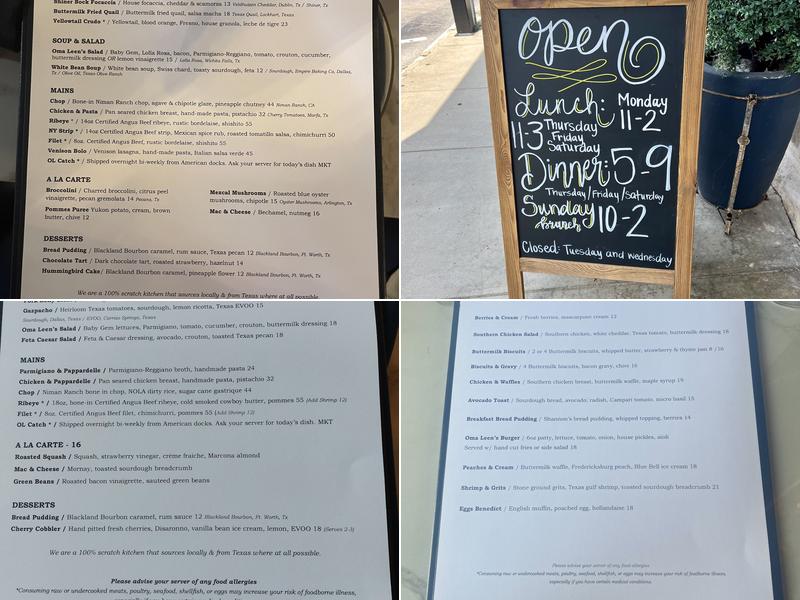 Shiner Bock Focaccia / House focaccia, cheddar & scamorza 13 Veldhuizen Cheddar, Dublin, Tx / Shiner, Tx
Buttermilk Fried Quail / Buttermilk fried quail, salsa macha 18 Texas Quail, Lockhart, Texas
Yellowtail Crudo * / Yellowtail, blood orange, Fresno, house granola, leche de tigre 23
SOUP & SALAD
Oma Leen's Salad / Baby Gem, Lolla Rosa, bacon, Parmigiano-Reggiano, tomato, crouton, cucumber,
buttermilk dressing OR lemon vinaigrette 15 / Lolla Rosa, Wichita Falls, Tx
White Bean Soup / White bean soup, Swiss chard, toasty sourdough, feta 12 / Sourdough, Empire Baking Co, Dallas,
Tx / Olive Oil, Texas Olive Ranch
MAINS
Chop / Bone-in Niman Ranch chop, agave & chipotle glaze, pineapple chutney 44 Niman Ranch, CA
Chicken & Pasta / Pan seared chicken breast, hand-made pasta, pistachio 32 Cherry Tomatoes, Marfa, Tx
Ribeye * / 14oz Certified Angus Beef ribeye, rustic bordelaise, shishito 55
NY Strip * / 14oz Certified Angus Beef strip, Mexican spice rub, roasted tomatillo salsa, chimichurri 50
Filet * / 8oz. Certified Angus Beef, rustic bordelaise, shishito 55
Venison Bolo / Venison lasagna, hand-made pasta, Italian salsa verde 45
OL Catch * / Shipped overnight bi-weekly from American docks. Ask your server for today's dish MKT
A LA CARTE
Broccolini / Charred broccolini, citrus peel
vinaigrette, pecan gremolata 14 Pecans, Tx
Pommes Puree Yukon potato, cream, brown
butter, chive 12
Mezcal Mushrooms / Roasted blue oyster
mushrooms, chipotle 15 Oyster Mushrooms, Arlington, Tx
Mac & Cheese / Bechamel, nutmeg 16
DESSERTS
Bread Pudding / Blackland Bourbon caramel, rum sauce, Texas pecan 12 Blackland Bourbon, Ft. Worth, Tx
Chocolate Tart / Dark chocolate tart, roasted strawberry, hazelnut 14
Hummingbird Cake / Blackland Bourbon caramel, pineapple flower 12 Blackland Bourbon, Ft. Worth, Tx
We are a 100% scratch kitchen that sources locally & from Texas where at all possible
Open
Lunch: Monday
11-2
11-3 Thursday
Friday
Saturday
Dinner: 5-9
Thursday/Friday/Saturday
Sunday
Brunch 10-2
Closed: Tuesday and Wednesday
Gazpacho / Heirloom Texas tomatoes, sourdough, lemon ricotta, Texas EVOO 15
Sourdough, Dallas, Texas / EVOO, Carrizo Springs, Texas
Oma Leen's Salad / Baby Gem lettuces, Parmigiano, tomato, cucumber, crouton, buttermilk dressing 18
Feta Caesar Salad / Feta & Caesar dressing, avocado, crouton, toasted Texas pecan 18
MAINS
Parmigiano & Pappardelle / Parmigiano-Reggiano broth, handmade pasta 24
Chicken & Pappardelle / Pan seared chicken breast, handmade pasta, pistachio 32
Chop / Niman Ranch bone in chop, NOLA dirty rice, sugar cane gastrique 44
Ribeye * / 18oz, bone-in Certified Angus Beef ribeye, cold smoked cowboy butter, pommes 55 (Add Shrimp 12)
Filet * / 8oz. Certified Angus Beef filet, chimichurri, pommes 55 (Add Shrimp 12)
OL Catch * / Shipped overnight bi-weekly from American docks. Ask your server for today's dish. MKT
A LA CARTE - 16
Roasted Squash / Squash, strawberry vinegar, crème fraiche, Marcona almond
Mac & Cheese / Mornay, toasted sourdough breadcrumb
Green Beans / Roasted bacon vinaigrette, sauteed green beans
DESSERTS
Bread Pudding / Blackland Bourbon caramel, rum sauce 12 Blackland Bourbon, Ft. Worth, Tx
Cherry Cobbler / Hand pitted fresh cherries, Disaronno, vanilla bean ice cream, lemon, EVOO 18 (Serves 2-3)
We are a 100% scratch kitchen that sources locally & from Texas where at all possible.
Please advise your server of any food allergies
*Consuming raw or undercooked meats, poultry, seafood, shellfish, or eggs may increase your risk of foodborne illness,
Berries & Cream / Fresh berries, mascarpone cream 12
Southern Chicken Salad / Southern chicken, white cheddar, Texas tomato, buttermilk dressing 18
Buttermilk Biscuits / 2 or 4 Buttermilk biscuits, whipped butter, strawberry & thyme jam 8 /16
Biscuits & Gravy / 4 Buttermilk biscuits, bacon gravy, chive 16
Chicken & Waffles / Southern chicken breast, buttermilk waffle, maple syrup 19
Avocado Toast / Sourdough bread, avocado, radish, Campari tomato, micro basil 15
Breakfast Bread Pudding / Shannon's bread pudding, whipped topping, berries 14
Oma Leen's Burger / 6oz patty, lettuce, tomato, onion, house pickles, aioli
Served w/ hand cut fries or side salad 18
Peaches & Cream / Buttermilk waffle, Fredericksburg peach, Blue Bell ice cream 18
Shrimp & Grits / Stone ground grits, Texas gulf shrimp, toasted sourdough breadcrumb 21
Eggs Benedict / English muffin, poached egg, hollandaise 18
Please advise your server of any food allergies
*Consuming raw or undercooked meats, poultry, seafood, shellfish, or eggs may increase your risk of foodborne illness,
especially if you have certain medical conditions.